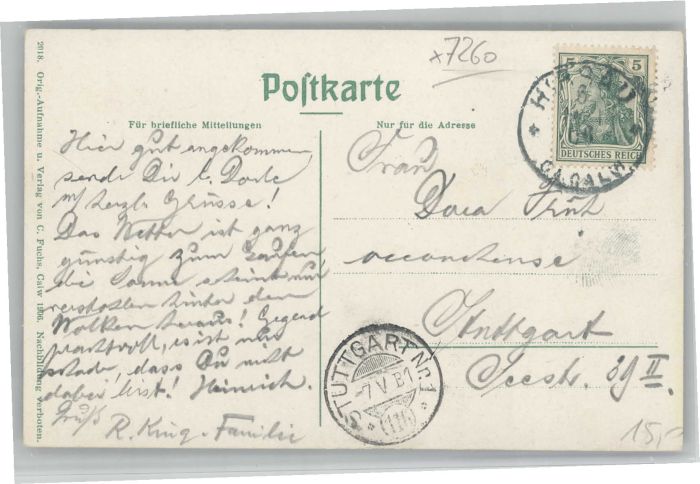 x7260
Postkarte
Für briefliche Mitteilungen
Nur für die Adresse
Hier gut angekommen,
sende Dir l. Dorle
m/ herzl. Grüsse!
Das Wetter ist ganz
günstig zum Laufen,
die Sonne scheint nur
verstohlen hinter den
Wolken heraus! Gegend
prachtvoll, es ist nur
schade, dass Du nicht
dabei bist! Heinrich.
Gruß
R. King. Familie
Frau
Dora Früh
Stuttgart
Seestr. 39 II.
15,-
5 5
DEUTSCHES REICH
HIRSAU
CALW
STUTTGART Nr. 1
-7 V
2018. Orig.-Aufnahme u. Verlag von C. Fuchs, Calw 1906. Nachbildung verboten.